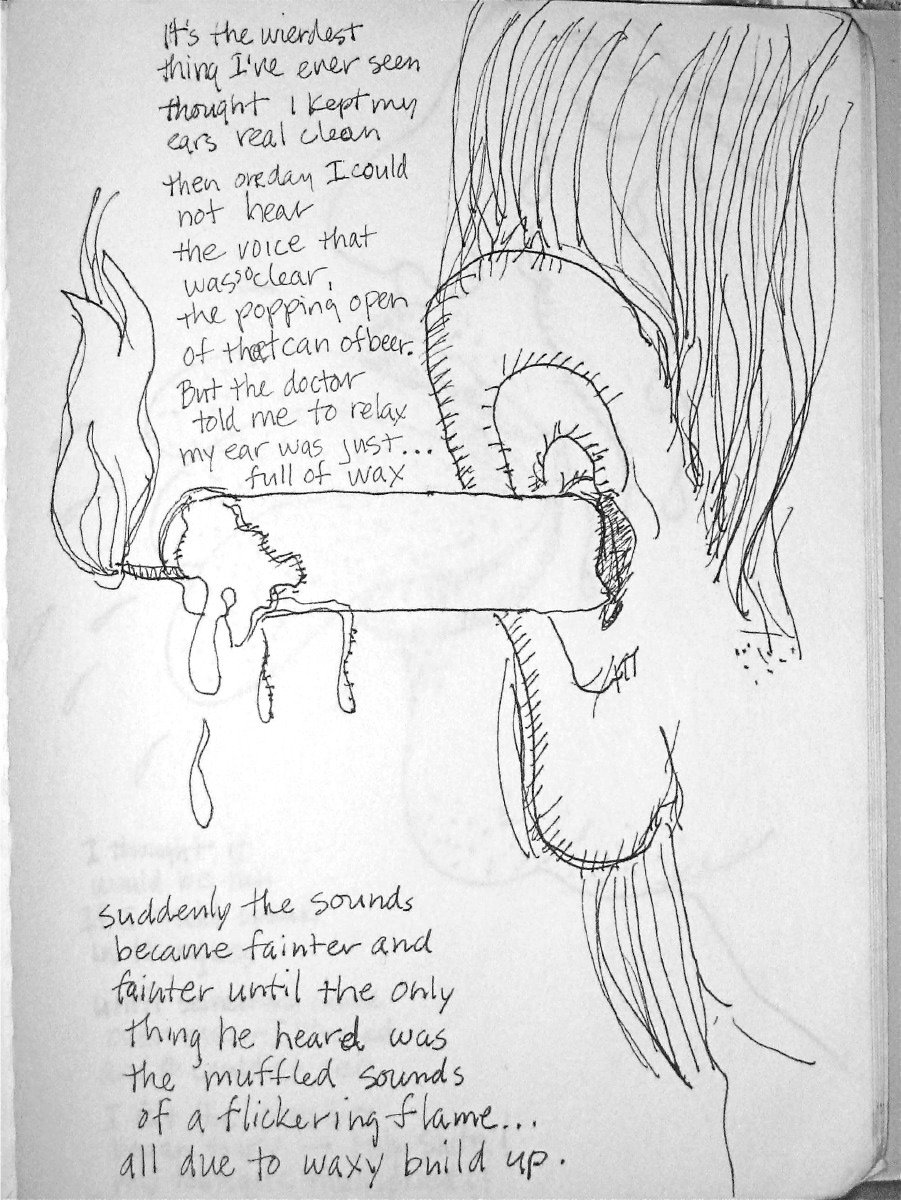 It's the wierdest
thing I've ever seen
thought I kept my
ears real clean
then oneday I could
not hear
the voice that
was so clear,
the popping open
of that can of beer.
But the doctor
told me to relax
my ear was just...
full of wax
suddenly the sounds
became fainter and
fainter until the only
thing he heard was
the muffled sounds
of a flickering flame...
all due to waxy build up.